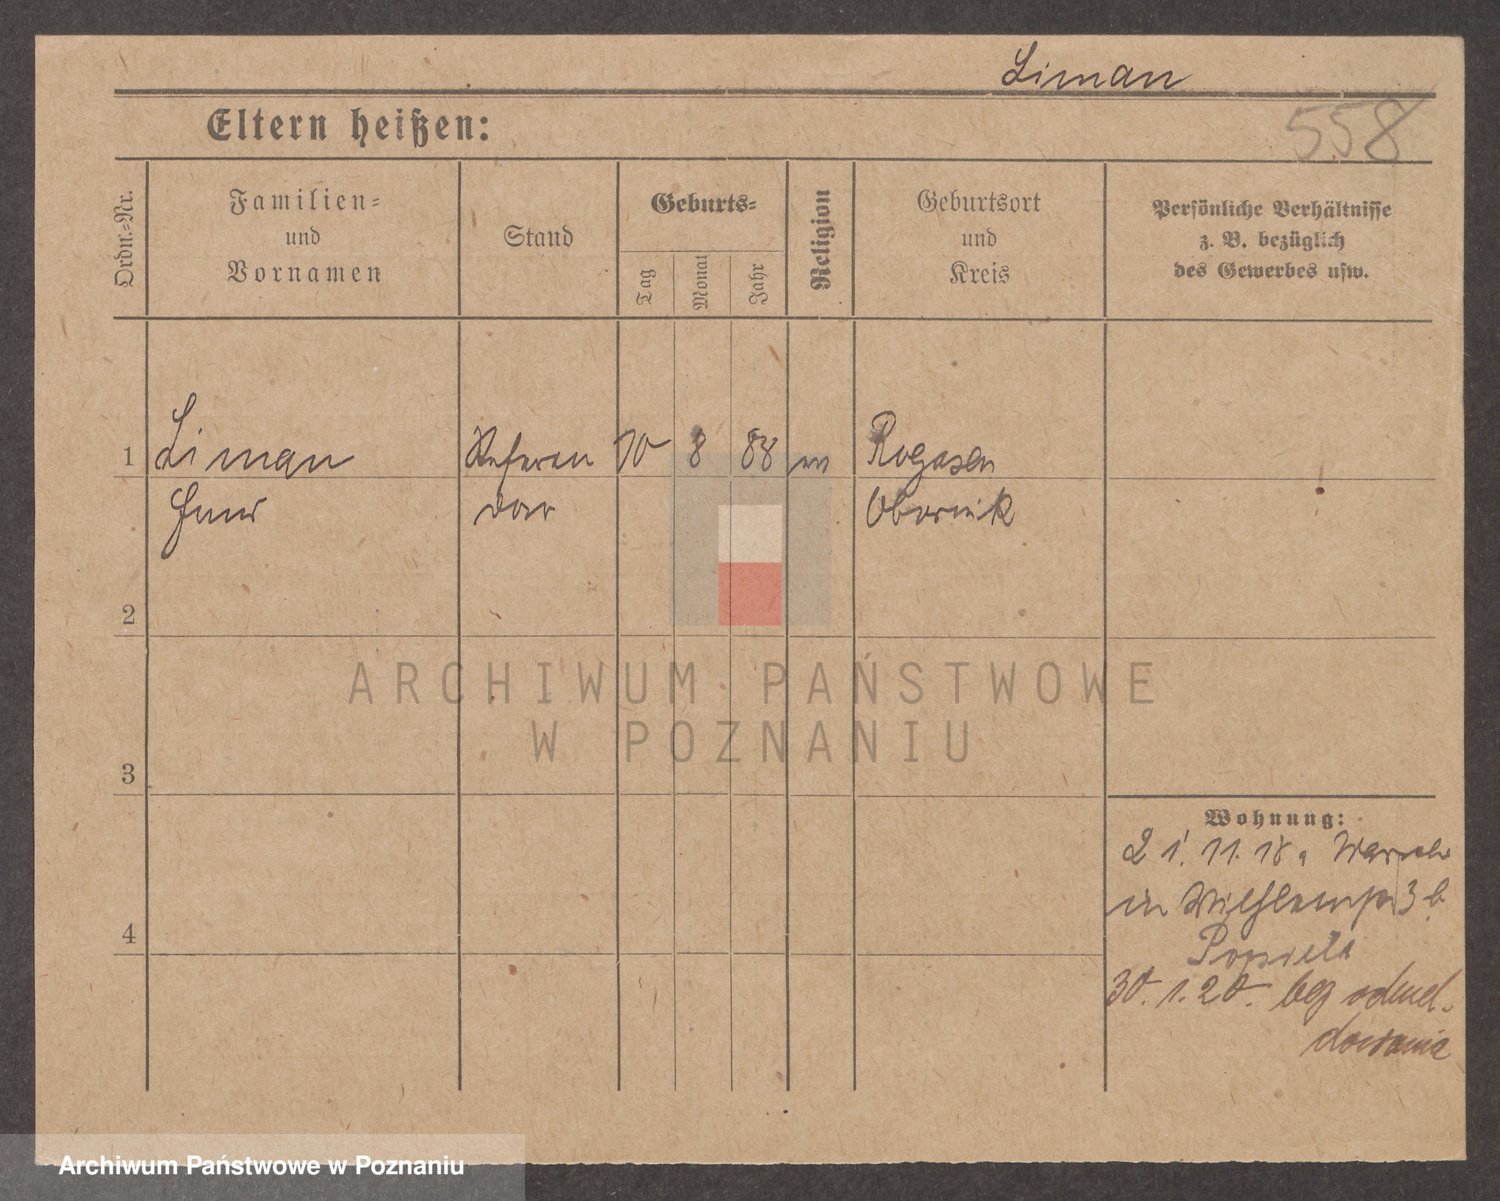 Liman
558
Eltern heißen:
Ordn.-Nr.
Familien-
und
Vornamen
Stand
Geburts-
Tag
Monat
Jahr
Religion
Geburtsort
und
Kreis
Persönliche Verhältnisse
z. B. bezüglich
des Gewerbes usw.
1 Liman Referen 10 8 88 Rogasen
dar Obornik
2
ARCHIWUM PAŃSTWOWE
W POZNANIU
3
Wohnung:
11. 18
in 3 b
4
30. 1. 20. bez odmel-
dowania
Archiwum Państwowe w Poznaniu